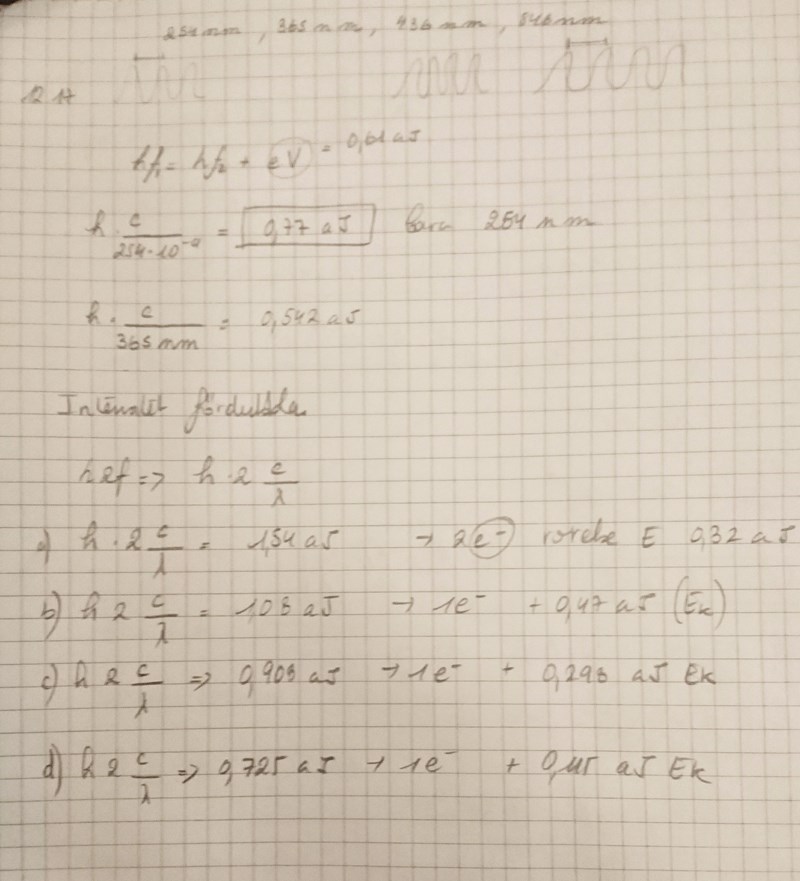 254 nm, 365 nm, 436 nm, 546 nm
12 17
hf₁ = hf₂ + eV = 0,61 aJ
h · c / 254·10⁻⁹ = 0,77 aJ bara 254 nm
h · c / 365 nm = 0,542 aJ
Intensitet fördubbla
h2f => h · 2 c/λ
a) h · 2 c/λ = 1,54 aJ → 2e⁻ rörelse E 0,32 aJ
b) h 2 c/λ = 1,08 aJ → 1e⁻ + 0,47 aJ (Ek)
c) h 2 c/λ => 0,908 aJ → 1e⁻ + 0,298 aJ Ek
d) h 2 c/λ => 0,725 aJ → 1e⁻ + 0,115 aJ Ek